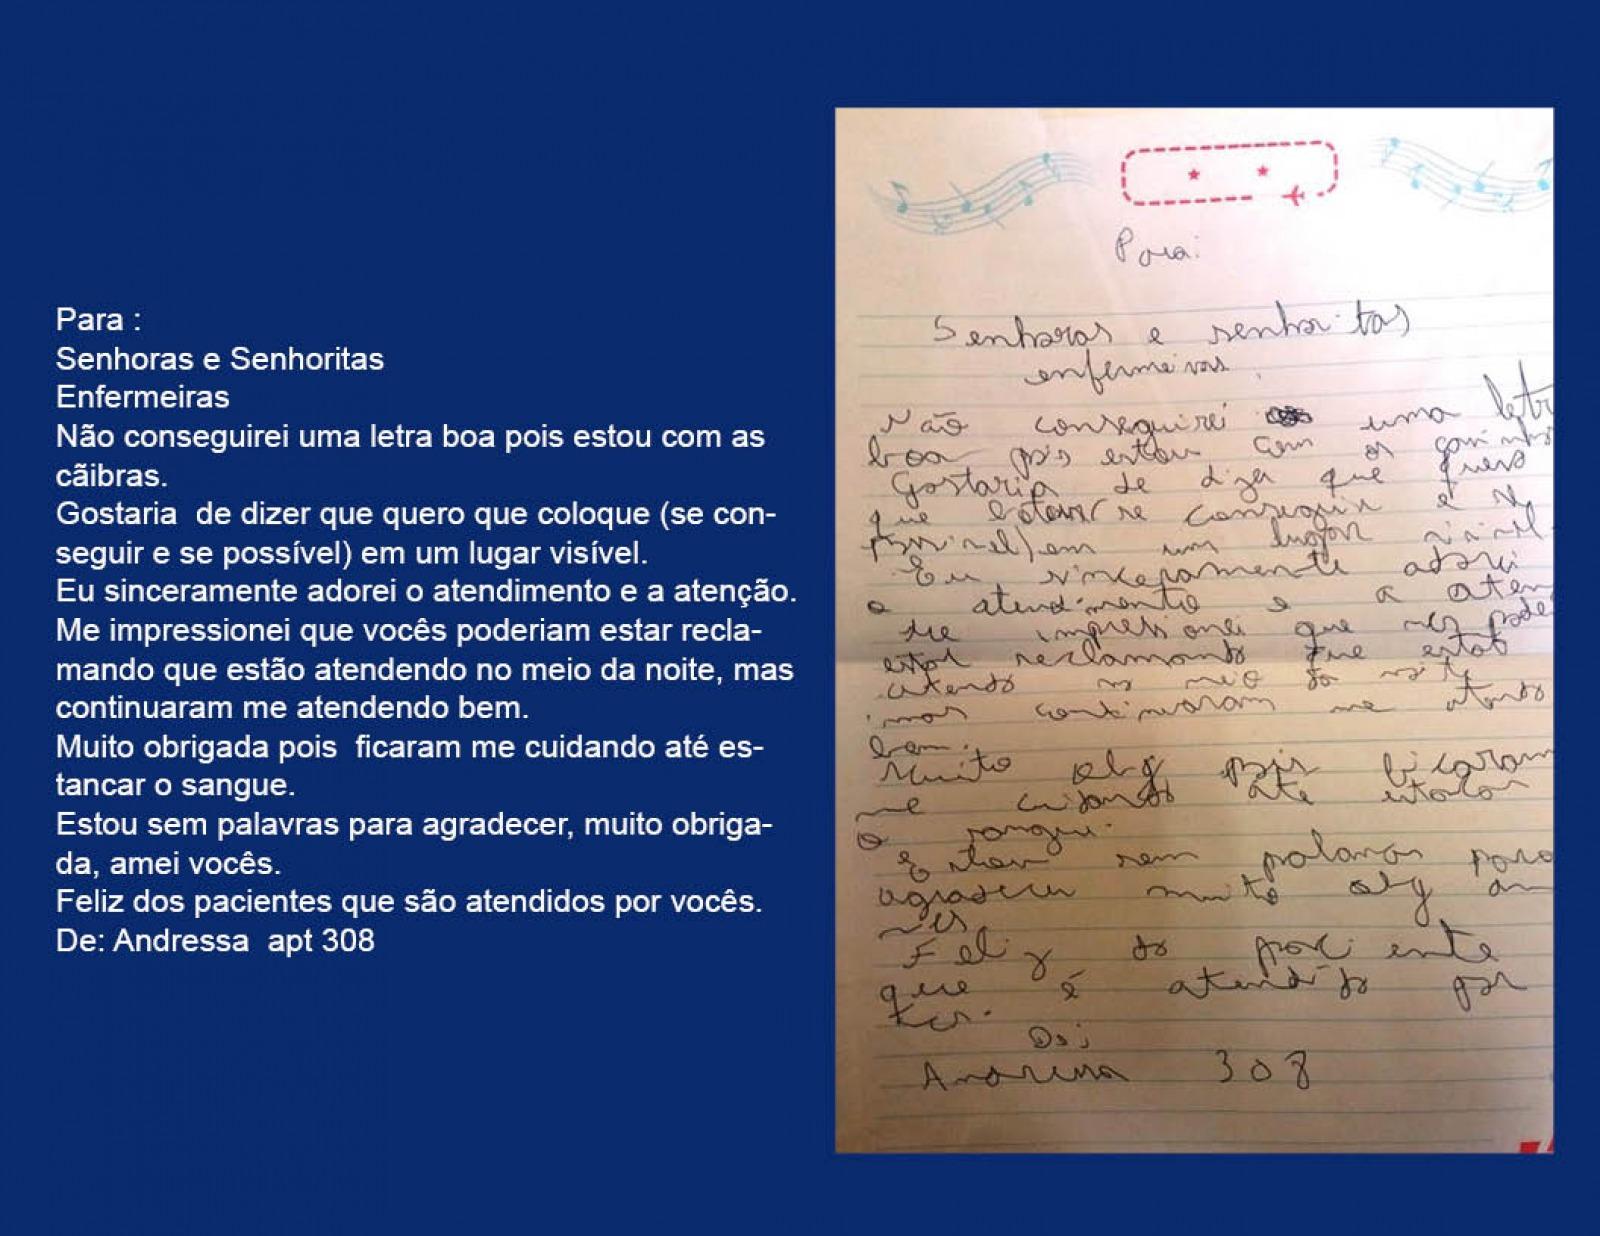 Para :
Senhoras e Senhoritas
Enfermeiras
Não conseguirei uma letra boa pois estou com as
cãibras.
Gostaria de dizer que quero que coloque (se con-
seguir e se possível) em um lugar visível.
Eu sinceramente adorei o atendimento e a atenção.
Me impressionei que vocês poderiam estar recla-
mando que estão atendendo no meio da noite, mas
continuaram me atendendo bem.
Muito obrigada pois ficaram me cuidando até es-
tancar o sangue.
Estou sem palavras para agradecer, muito obriga-
da, amei vocês.
Feliz dos pacientes que são atendidos por vocês.
De: Andressa apt 308
Para:
Senhoras e senhoritas
enfermeiras
Não conseguirei uma letr
boa pois estou com os
Gostaria de dizer que quero
que se conseguir e se
possivel) em um lugar visivel.
Eu sinceramente adorei
o atendimento e a aten
Me impressionei que vcs pode
estar reclamando que estao
atendo no meio da noite
mas continuaram me atendo
bem.
Muito obg pois ficaram
me cuidando ate estacar
o sangue.
Estou sem palavras para
agradecer muito obg am
vcs
Feliz do paciente
que é atendido por
vcs.
De:
Andressa 308